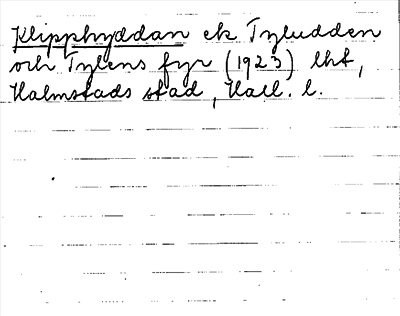 Klipphyddan ek Tyludden
och Tylens fyr (1923) lht,
Halmstads stad, Hall. l.